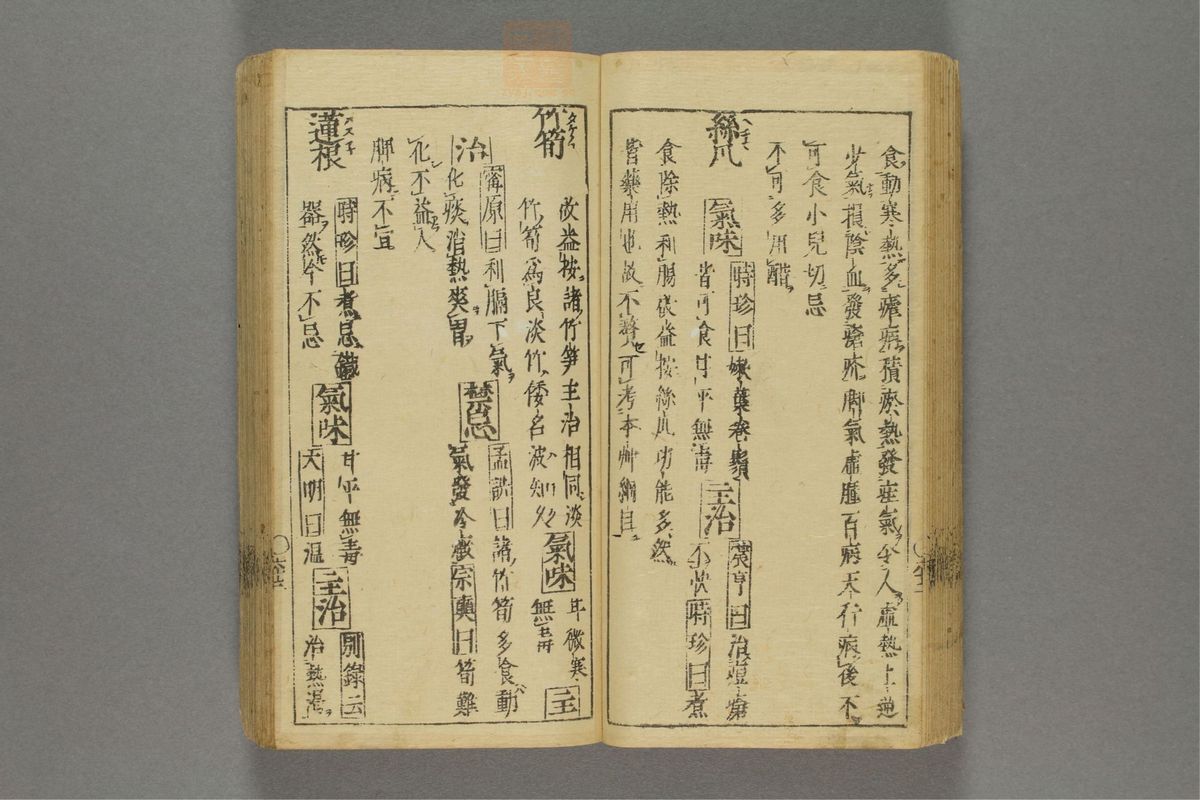 食動寒熱多瘧病積瘀熱發疰氣令人虛熱上逆
少氣損陰血發瘡疥脚氣虛腫百病天行病後不
可食小兒切忌
不可多用醋
絲瓜 氣味 時珍曰嫩葉卷鬚
皆可食甘平無毒 主治 震亨曰治痘瘡
不快時珍曰煮
食除熱利腸成益按絲瓜功能多然
皆藥用也故不贅可考本艸綱目
竹筍 成益按諸竹筍主治相同淡
竹筍爲良淡竹倭名波知久 氣味 甘微寒
無毒 主
治 甯原曰利膈下氣
化痰消熱爽胃 禁忌 孟詵曰諸竹筍多食動
氣發冷癥宗奭曰筍難
化不益人
脾病不宜
蓮根 時珍曰煮忌鐵
器然今不忌 氣味 甘平無毒
大明曰温 主治 別錄云
治熱渴